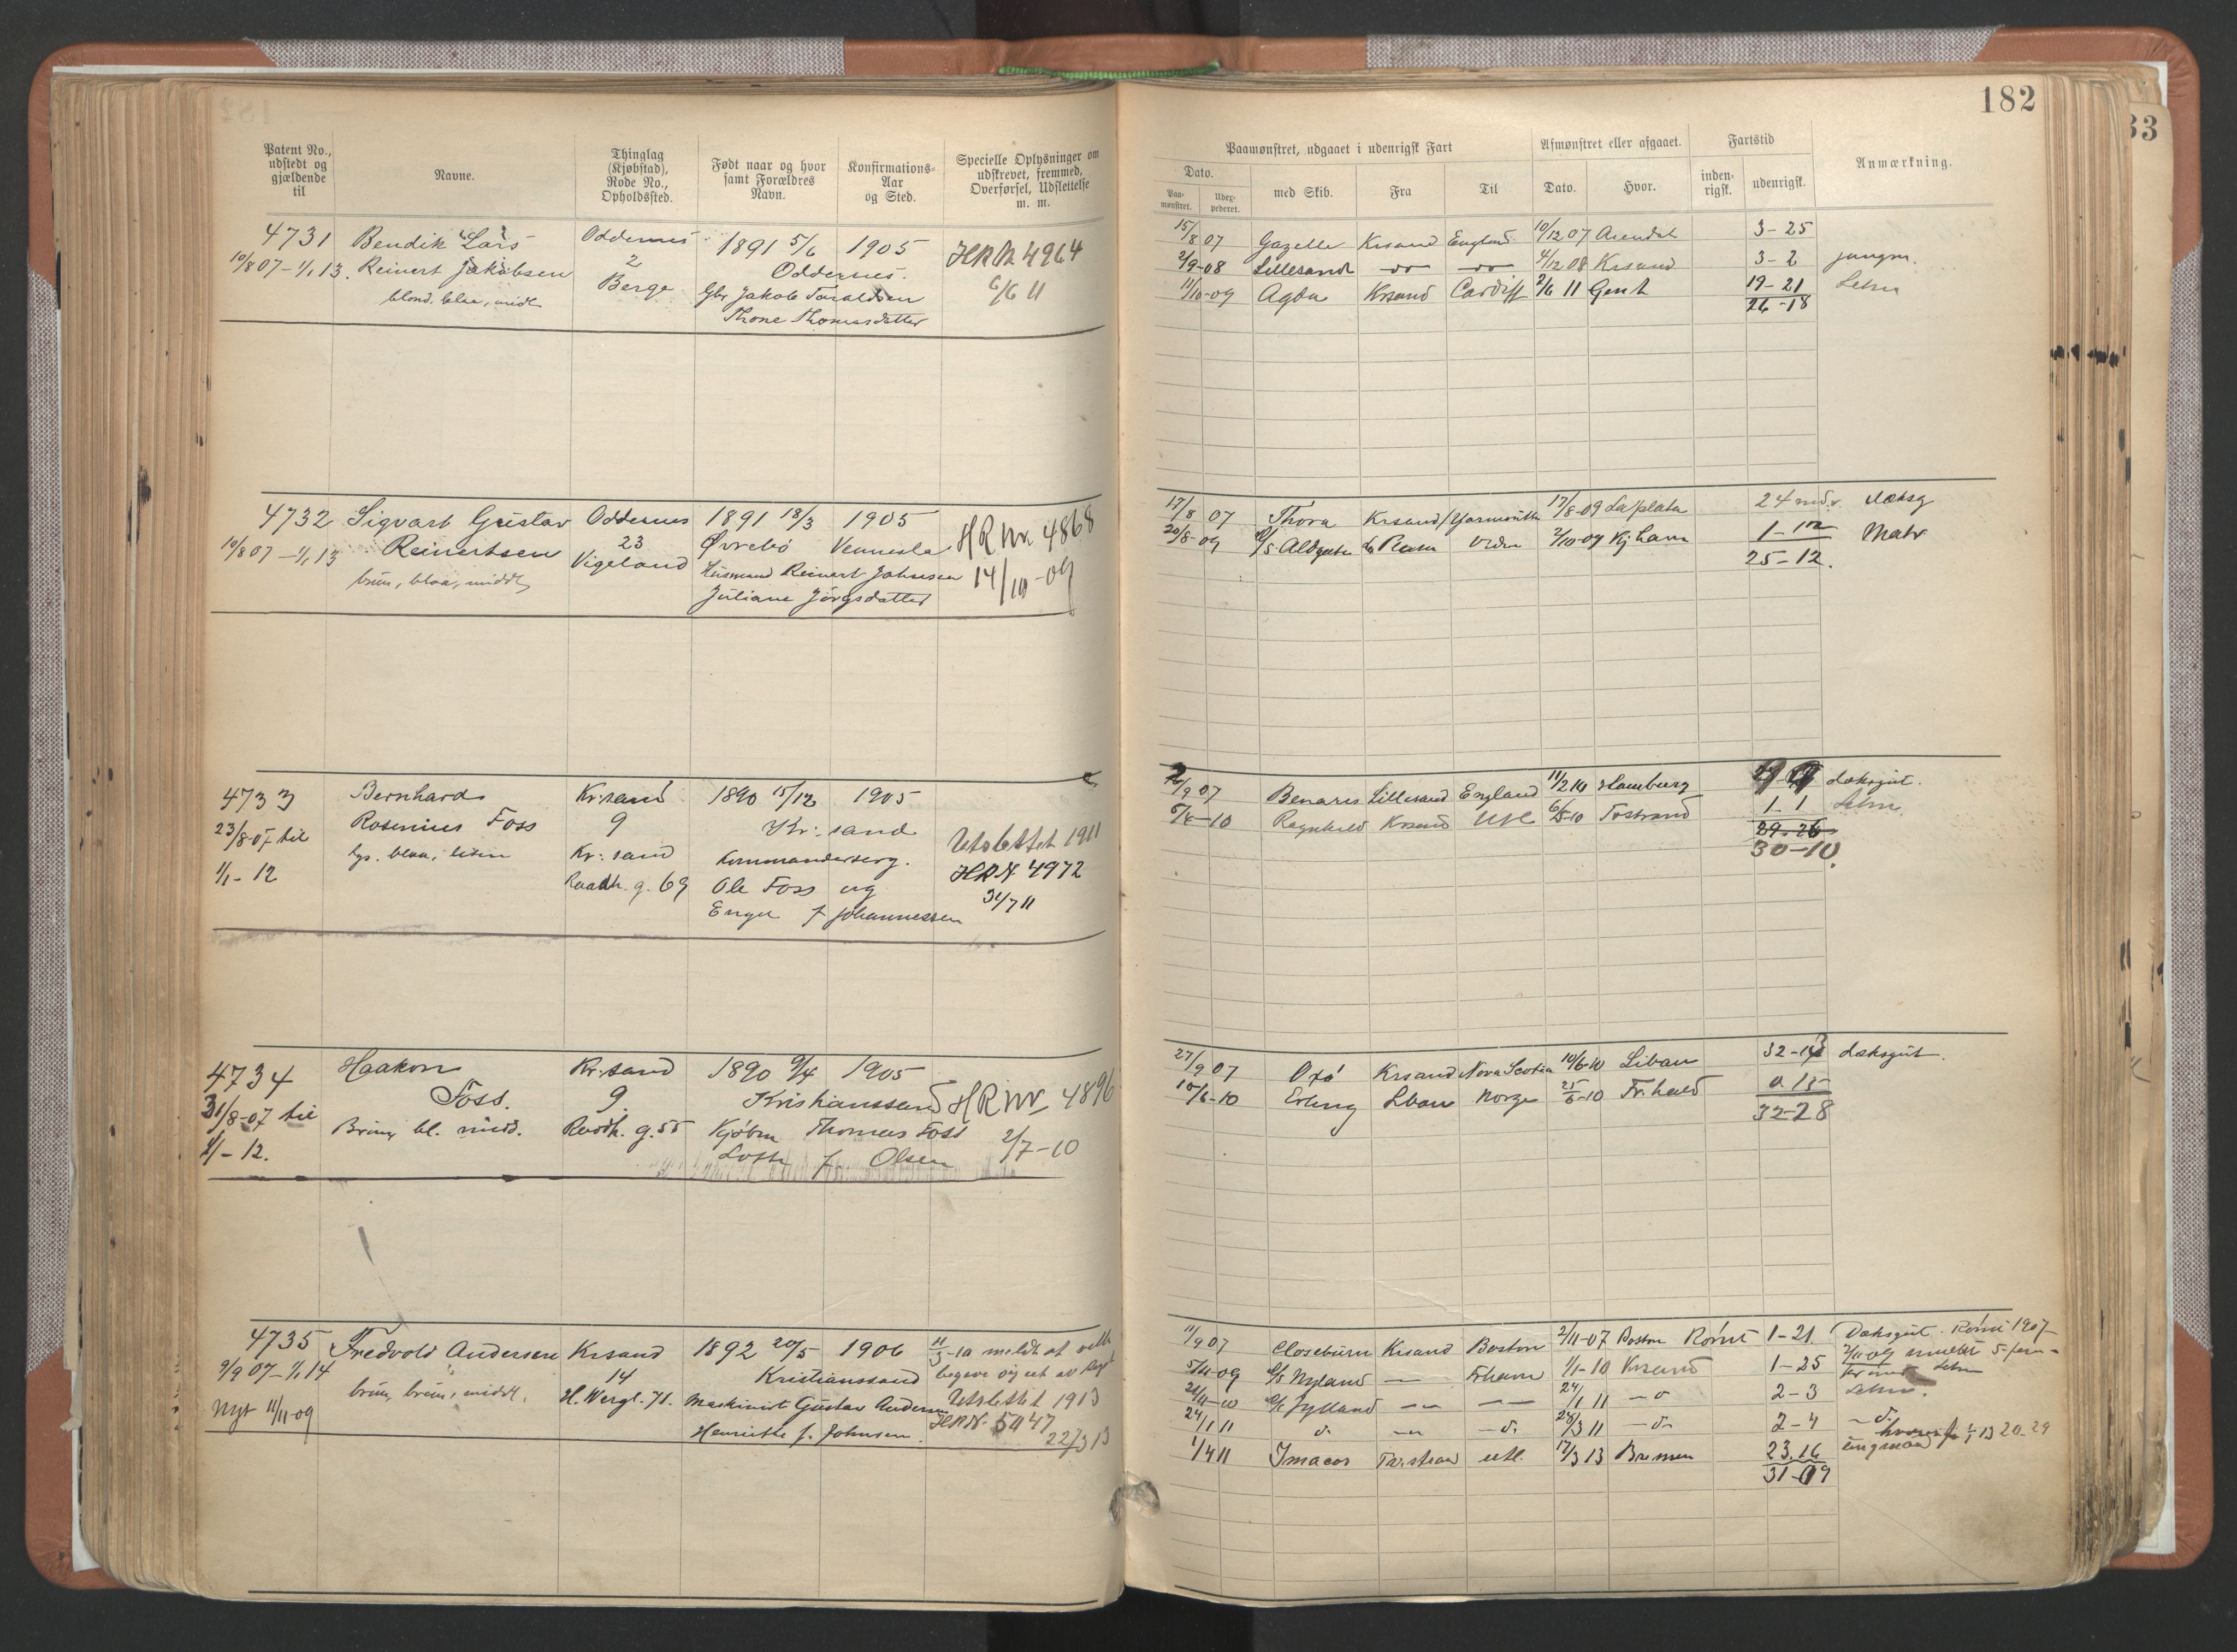 182
33
Patent No., udstedt og gjældende til
Navne.
Thinglag (Kjøbstad), Rode No., Opholdssted.
Født naar og hvor samt Forældres Navn.
Konfirmations-Aar og Sted.
Specielle Oplysninger om udskrevet, fremmed, Overførsel, Udslettelse m. m.
Paamønstret, udgaaet i udenrigsk Fart
Afmønstret eller afgaaet.
Fartstid
Anmærkning.
Dato.
Paa-mønstret.
Udex-pederet.
med Skib.
Fra
Til
Dato.
Hvor.
inden-rigsk.
udenrigsk.
4731 Bendik Lars Oddernes 1891 5/6 1905 HR Nr 4964
10/8 07 – 1/1 13. Reinert Jakobsen 2 Oddernes. 6/6 11
blond, blaa, midl Berge Gbr Jakob Taraldsen
Thone Thomasdatter
15/8 07 Gazelle Krsand England 10/12 07 Arendal 3-25
2/9-08 Lillesand -"- -"- 4/12 08 Krsand 3-2 jungm.
11/10-09 Agda Krsand Cardiff 2/6 11 Gent 19-21 Letm
26-18
4732 Sigvart Gustav Oddernes 1891 18/3 1905 HR Nr. 4868
10/8 07 – 1/1 13 Reinertsen 23 Øvrebø Vennesla 14/10-09
brun, blaa, middl Vigeland Husmand Reinert Johnsen
Juliane Jörgsdatter
17/8 07 Thora Krsand Yarmouth 17/8-09 Laplata 24 mdr. Dæksg
20/8-09 2/10-09 Kjhavn 1-12 Matr
25-12.
4733 Bernhard Kr:sand 1890 15/12 1905
23/8-07 til Rosenius Foss 9 Kr:sand Utslettet 1911
lys. blaa, liten Kr:sand Kommanderserg. HR N 4972
1/1-12 Raadh. g. 69 Ole Foss og 31/7 11
Enge f Johannessen
2/9 07 Benares Lillesand England 11/2 10 Hamburg dæksgut.
Ragnhild Krsand Tostrand 1-1 Letm
29-26
30-10.
4734 Haakon Kr:sand 1890 9/4 1905
31/8-07 til Foss. 9 Kristianssand HR Nr 4896
1/1-12. Brun bl. midd. Raadh. g. 55 Kjøbm Thomas Foss 2/7-10
f Olsen
27/9 07 Oxö Krsand Nova Scotia 10/6-10 Libau dæksgut.
10/6-10 Erling Libau Norge 25/6-10 Fr.hald 0.15
32-28
4735 Fredvold Andersen Krsand 1892 20/5 1906 11/3-10 meldt at ville
9/9 07 – 1/1 14 14 Kristianssand begive sig ut av Riget
brun, brun, middl. H. Wergl. 71. Maskinist Gustav Andersen Utslettet 1913
Nyt 11/11-09 Henriette f. Johnsen. HR N. 5047
22/3 13
11/9 07 Closeburn Krsand Boston 2/11-07 Boston Rømt 1-21 Dæksgut. Rømt 1907
5/11-09 D/S Nyland — Frhavn 1/1-10 Krsand 1-25 Letm
D/S Jylland -"- -"- 24/1 11 -"- 2-3 Letm.
24/1 11 do -"- -do- 28/3 11 -do- 2-4 -do-
1/4 11 Imacos utl. 17/3 13 Bremen 23.16 ungmand
31-09